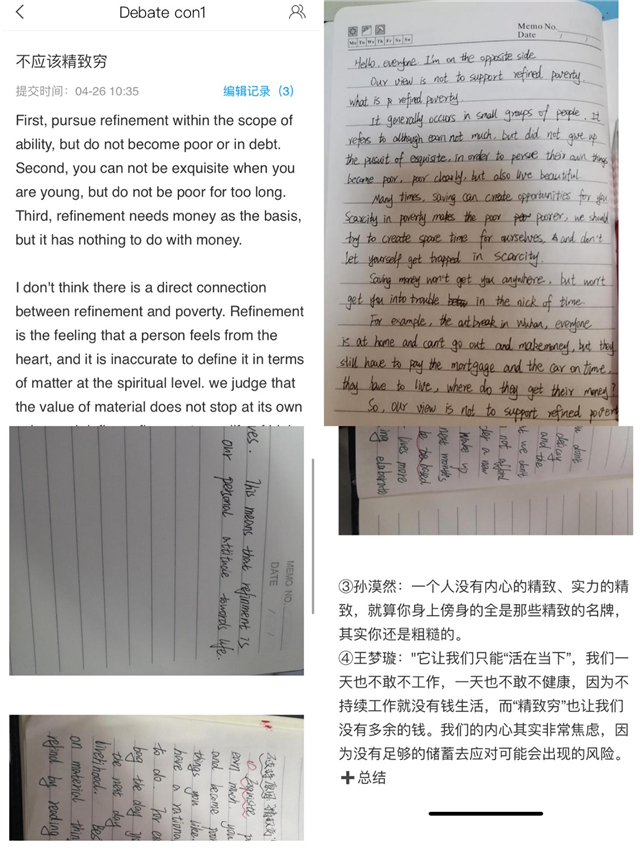 Debate con1
不应该精致穷
提交时间：04-26 10:35
编辑记录（3）
First, pursue refinement within the scope of
ability, but do not become poor or in debt.
Second, you can not be exquisite when you
are young, but do not be poor for too long.
Third, refinement needs money as the basis,
but it has nothing to do with money.
I don't think there is a direct connection
between refinement and poverty. Refinement
is the feeling that a person feels from the
heart, and it is inaccurate to define it in terms
of matter at the spiritual level. we judge that
the value of material does not stop at its own
ves. This means that refinment is
our personal attitude towards life.
MEMO NO.
DATE / /
earn much, you
and become poor
things you like.
have a rationa
to do. For ex
bag the day
the next day
livelihood. Bes
on material thin
refind by reading
Memo No.
Date / /
Mo Tu We Th Fr Sa Su
Hello, everyone I'm on the opposite side
Our view is not to support refined poverty.
what is refined poverty.
It generally occurs in small groups of people. It
refers to although earn not much, but did not give up
the pusuit of exquisite, in order to persue their own things
become poor, poor cleanly, but also live beautiful
Many times, saving can create opportunities for you
Scarcity in poverty makes the poor poorer, we should
try to create spare time for ourselves, and don't
let yourself get trapped in scarcity
Saving money won't get you anywhere, but won't
get you into trouble in the nick of time
For example, the outbreak in Wuhan, everyone
is at home and can't go out and make money, but they
still have to pay the mortgage and the car on time,
they have to live, where do they get their money?
So, our view is not to support refined povert
u dont
and the
not afford
t we don't
for a new
make up
next month's
lives more
ing elaborate
③孙漠然：一个人没有内心的精致、实力的精
致，就算你身上傍身的全是那些精致的名牌，
其实你还是粗糙的。
④王梦璇："它让我们只能“活在当下”，我们一
天也不敢不工作，一天也不敢不健康，因为不
持续工作就没有钱生活，而“精致穷”也让我们
没有多余的钱。我们的内心其实非常焦虑，因
为没有足够的储蓄去应对可能会出现的风险。
➕总结